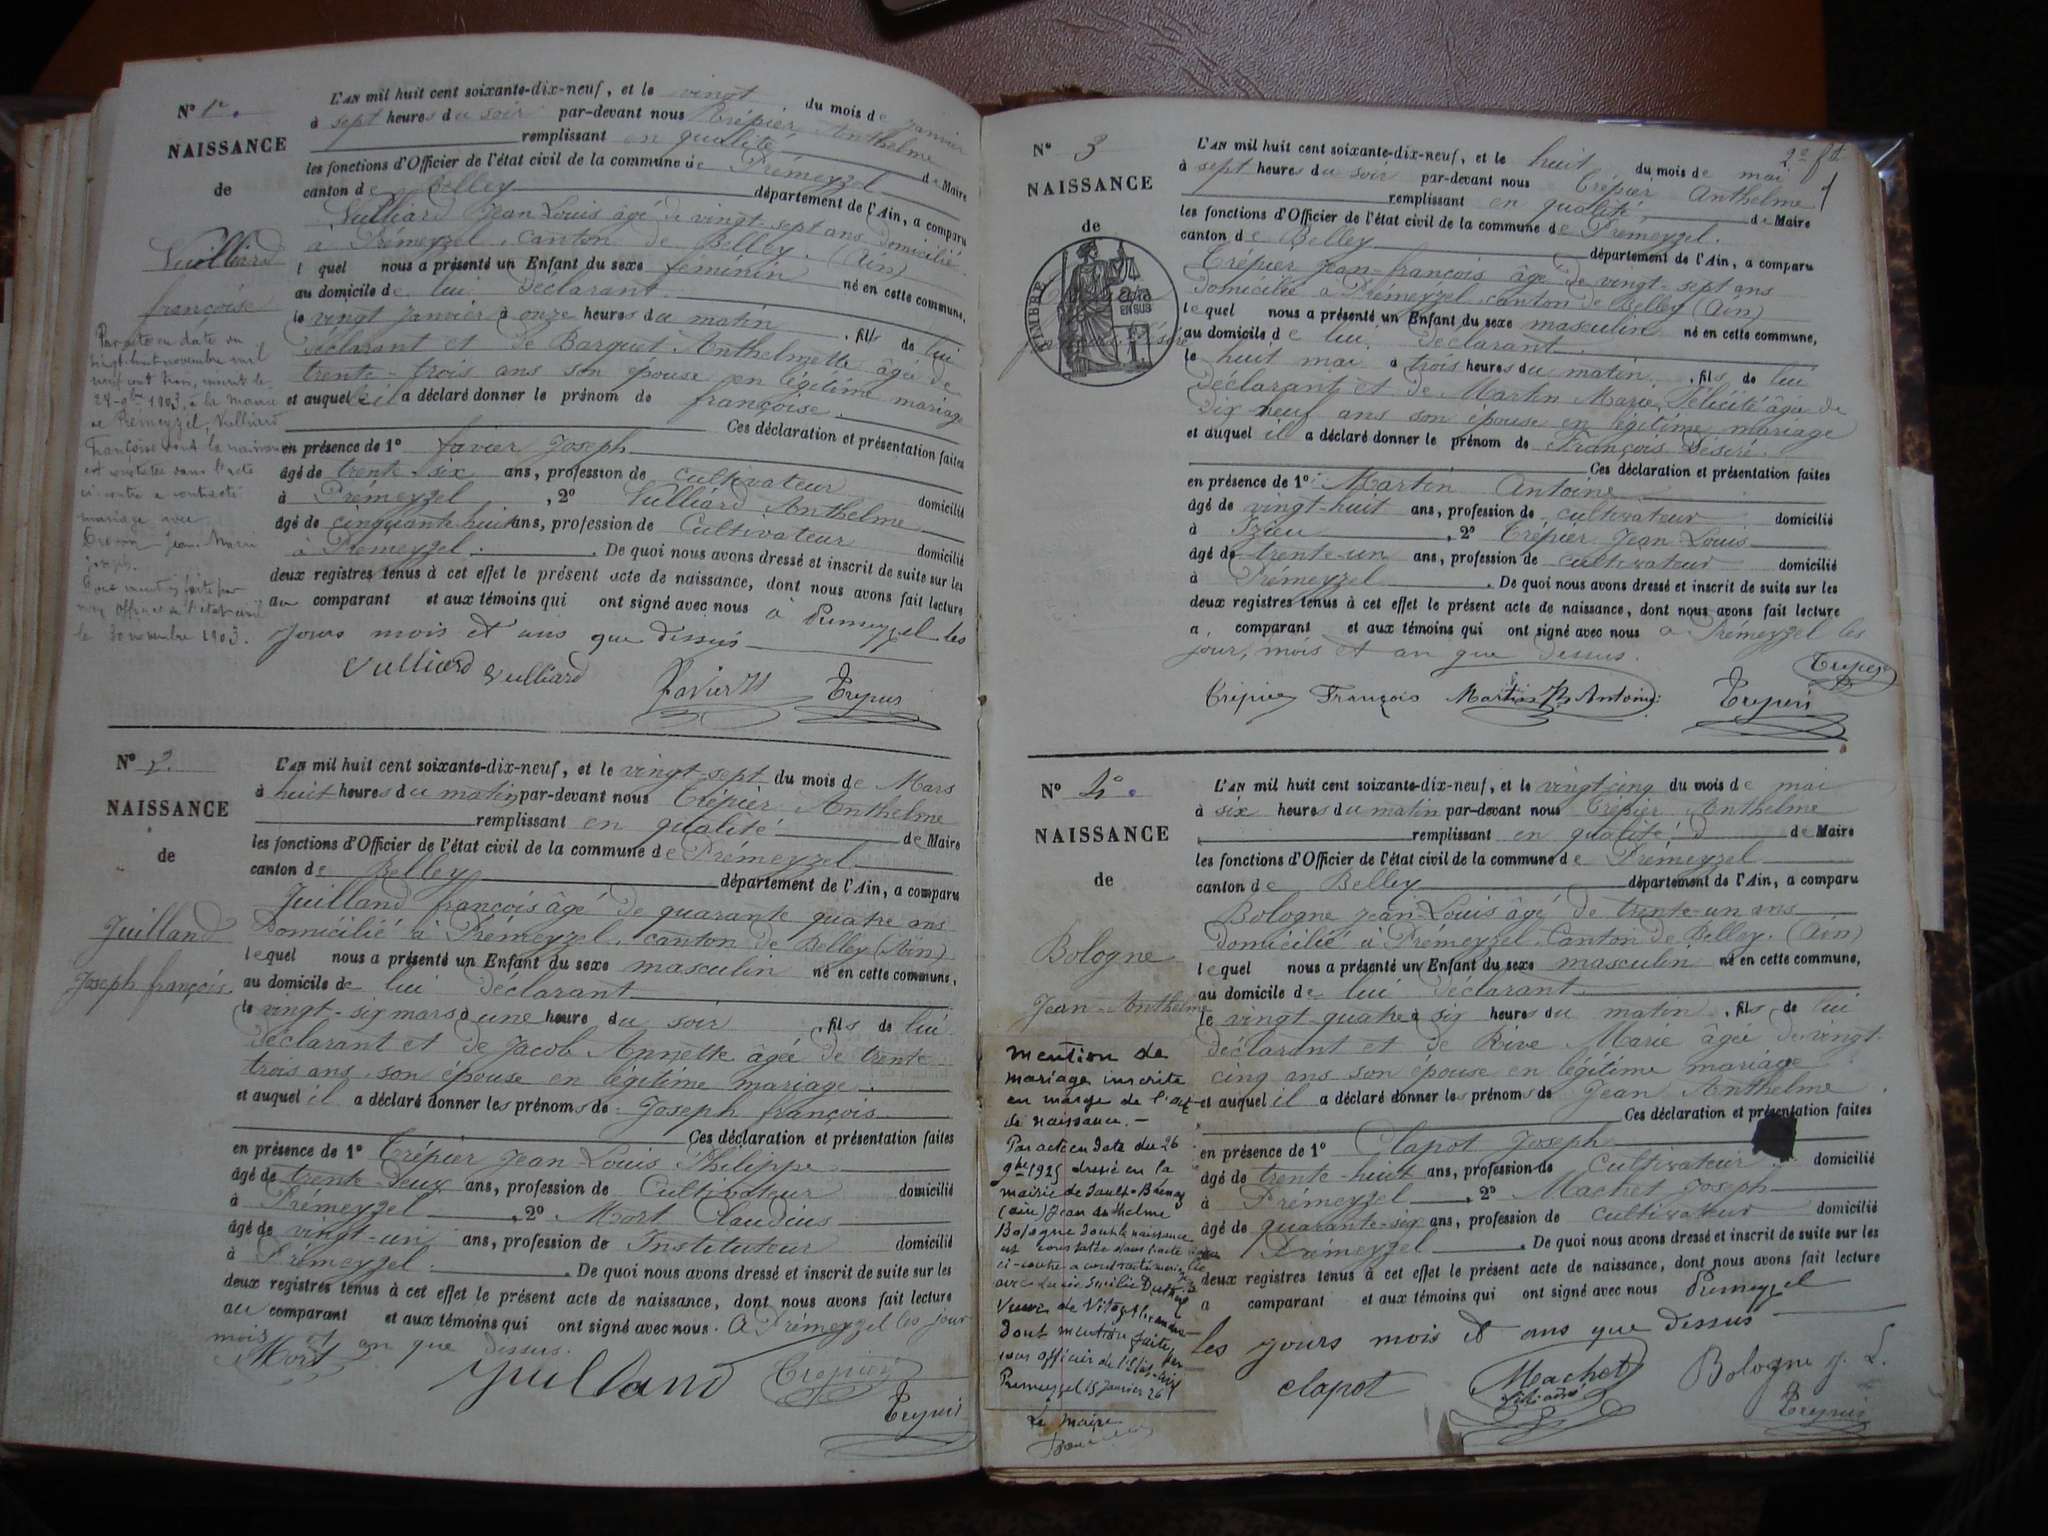 N° 1er
NAISSANCE
de
Vuilliard
françoise
Par acte en date du
vingt huit novembre mil
neuf cent trois, inscrit le
28 9bre 1903, à la mairie
de Prémeyzel, Vulliard
Françoise dont la naissance
est constatée dans l'acte
ci-contre a contracté
mariage avec
Jean Marie
Joseph.
le 30 novembre 1903.
L'AN mil huit cent soixante-dix-neuf, et le vingt du mois de janvier
à sept heures du soir par-devant nous Trépier Anthelme
remplissant en qualité de Maire
les fonctions d'Officier de l'état civil de la commune de Prémeyzel
canton de Belley département de l'Ain, a comparu
Vulliard Jean Louis âgé de vingt-sept ans domicilié
à Prémeyzel, canton de Belley. (Ain)
lequel nous a présenté un Enfant du sexe féminin né en cette commune,
au domicile de lui déclarant
le vingt janvier à onze heures du matin, fille de lui
déclarant et de Barquet Anthelmette âgée de
trente-trois ans son épouse en légitime mariage
et auquel il a déclaré donner le prénom de françoise.
Ces déclaration et présentation faites
en présence de 1° favier Joseph
âgé de trente-six ans, profession de cultivateur domicilié
à Prémeyzel, 2° Vulliard Anthelme
âgé de cinquante huit ans, profession de Cultivateur domicilié
à Prémeyzel. De quoi nous avons dressé et inscrit de suite sur les
deux registres tenus à cet effet le présent acte de naissance, dont nous avons fait lecture
au comparant et aux témoins qui ont signé avec nous à Premeyzel les
jours mois et ans que dessus
Vulliard Vulliard Favier Trepier
N° 2
NAISSANCE
de
Juilland
Joseph françois
L'AN mil huit cent soixante-dix-neuf, et le vingt-sept du mois de Mars
à huit heures du matin par-devant nous Trépier Anthelme
remplissant en qualité de Maire
les fonctions d'Officier de l'état civil de la commune de Prémeyzel
canton de Belley département de l'Ain, a comparu
Juilland françois âgé de quarante quatre ans
Domicilié à Prémeyzel, canton de Belley (Ain)
lequel nous a présenté un Enfant du sexe masculin né en cette commune,
au domicile de lui déclarant
le vingt-six mars à une heure du soir, fils de lui
déclarant et de Jacob Annette âgée de trente
trois ans, son épouse en légitime mariage
et auquel il a déclaré donner les prénoms de Joseph françois
Ces déclaration et présentation faites
en présence de 1° Trépier Jean-Louis Philippe
âgé de trente-deux ans, profession de Cultivateur domicilié
à Prémeyzel, 2° Mort Claudius
âgé de vingt-un ans, profession de Instituteur domicilié
à Prémeyzel. De quoi nous avons dressé et inscrit de suite sur les
deux registres tenus à cet effet le présent acte de naissance, dont nous avons fait lecture
au comparant et aux témoins qui ont signé avec nous. A Prémeyzel les jour
mois et an que dessus.
Mort Juilland Trepier Trepier
2e ft
1
N° 3
NAISSANCE
de
TIMBRE
L'AN mil huit cent soixante-dix-neuf, et le huit du mois de mai
à sept heures du soir par-devant nous Trépier Anthelme
remplissant en qualité de Maire
les fonctions d'Officier de l'état civil de la commune de Prémeyzel.
canton de Belley département de l'Ain, a comparu
Trépier Jean-françois âgé de vingt-sept ans
Domicilié à Prémeyzel, canton de Belley (Ain)
lequel nous a présenté un Enfant du sexe masculin né en cette commune,
au domicile de lui déclarant
le huit mai à trois heures du matin, fils de lui
déclarant et de Martin Marie, Félicité âgée de
Dix neuf ans son épouse en légitime mariage
et auquel il a déclaré donner le prénom de François Désiré.
Ces déclaration et présentation faites
en présence de 1° Martin Antoine
âgé de vingt-huit ans, profession de cultivateur domicilié
à Izieu, 2° Trépier Jean-Louis
âgé de trente-un ans, profession de cultivateur domicilié
à Prémeyzel. De quoi nous avons dressé et inscrit de suite sur les
deux registres tenus à cet effet le présent acte de naissance, dont nous avons fait lecture
a comparant et aux témoins qui ont signé avec nous à Prémeyzel les
jour, mois et an que dessus.
Trepier
Trépier François Martin Antoine Trepier
N° 4
NAISSANCE
de
Bologne
Jean-Anthelme
mention de
mariage inscrite
en marge de l'acte
de naissance.-
Par acte en date du 26
9bre 1925 dressé en la
mairie de Sault-Brénaz
(Ain) Jean Anthelme
Bologne dont la naissance
est constatée dans l'acte
ci-contre a contracté mariage
avec
veuve de
dont mention faite par
nous officier de l'état-civil
Premeyzel 15 Janvier 26
Le maire
L'AN mil huit cent soixante-dix-neuf, et le vingt-cinq du mois de mai
à six heures du matin par-devant nous Trépier Anthelme
remplissant en qualité d de Maire
les fonctions d'Officier de l'état civil de la commune de Prémeyzel
canton de Belley département de l'Ain, a comparu
Bologne Jean-Louis âgé de trente-un ans
domicilié à Prémeyzel, Canton de Belley. (Ain)
lequel nous a présenté un Enfant du sexe masculin né en cette commune,
au domicile de lui déclarant
le vingt-quatre à six heures du matin, fils de lui
déclarant et de Rive Marie âgée de vingt-
cinq ans son épouse en légitime mariage
et auquel il a déclaré donner les prénoms de Jean Anthelme
Ces déclaration et présentation faites
en présence de 1° Clapot Joseph
âgé de trente-huit ans, profession de Cultivateur domicilié
à Prémeyzel, 2° Machet Joseph
âgé de quarante-six ans, profession de cultivateur domicilié
Prémeyzel. De quoi nous avons dressé et inscrit de suite sur les
deux registres tenus à cet effet le présent acte de naissance, dont nous avons fait lecture
a comparant et aux témoins qui ont signé avec nous Premeyzel
les jours mois et ans que dessus
Clapot Machet Bologne J. L.
Trepier